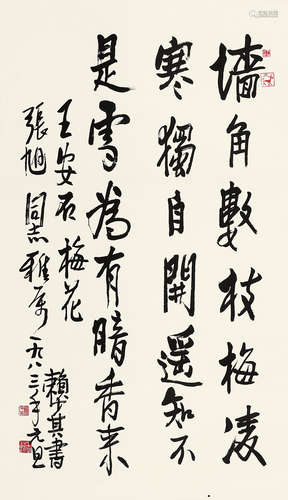 墻角數枝梅凌
寒獨自開遥知不
是雪為有暗香来
王安石梅花
張旭同志雅属一九八三年元旦
賴少其書